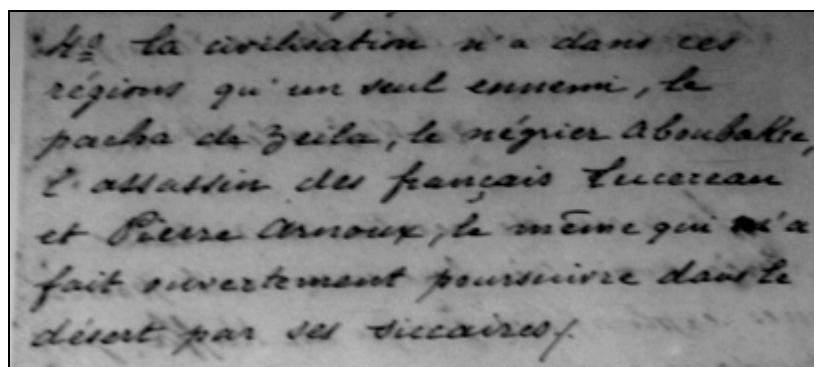 4º la civilisation n'a dans ces
régions qu'un seul ennemi, le
pacha de Zeila, le négrier Aboubakre,
l'assassin des français Lucereau
et Pierre Arnoux, le même qui m'a
fait ouvertement poursuivre dans le
désert par ses siccaires/.